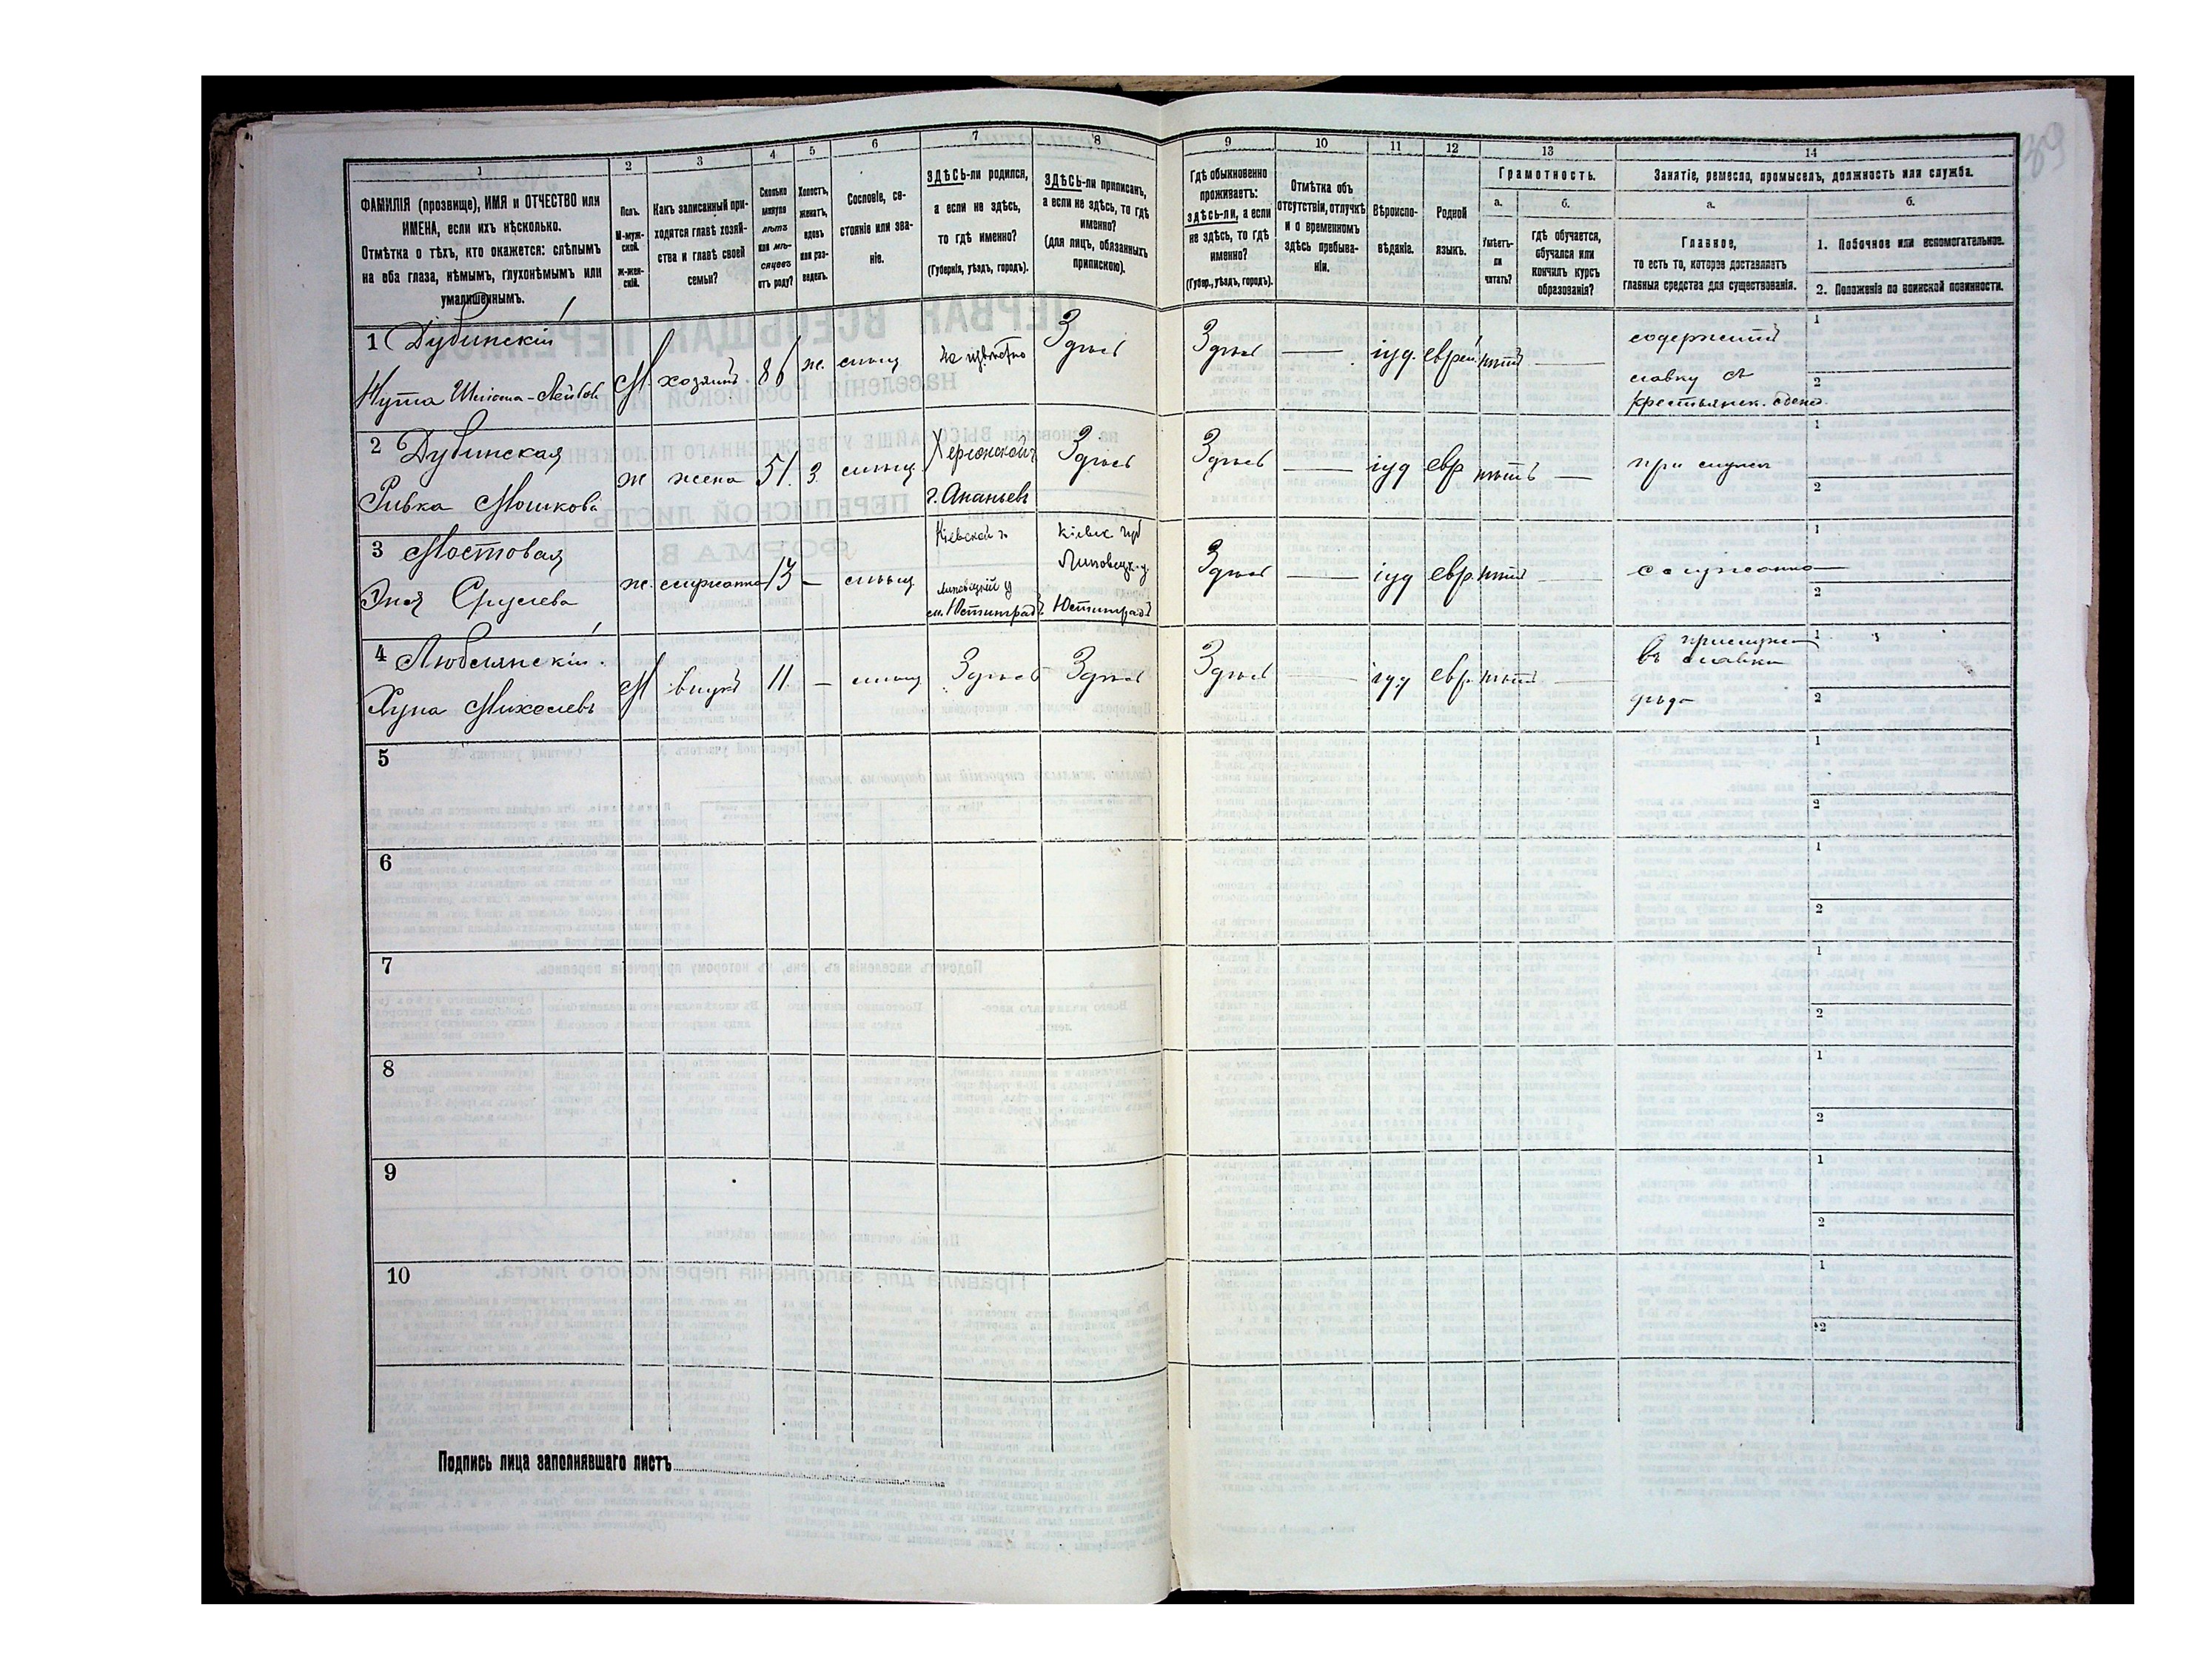 39
1 2 3 4 5 6 7 8 9 10 11 12 13 14
ФАМИЛІЯ (прозвище), ИМЯ и ОТЧЕСТВО или
ИМЕНА, если ихъ нѣсколько.
Отмѣтка о тѣхъ, кто окажется: слѣпымъ
на оба глаза, нѣмымъ, глухонѣмымъ или
умалишеннымъ.
Полъ.
М-муж-
ской.
Ж-жен-
скій.
Какъ записанный при-
ходится главѣ хозяй-
ства и главѣ своей
семьи?
Сколько
минуло
лѣтъ
или мѣ-
сяцевъ
отъ роду?
Холостъ,
женатъ,
вдовъ
или раз-
веденъ.
Сословіе, со-
стояніе или зва-
ніе.
ЗДѢСЬ-ли родился,
а если не здѣсь,
то гдѣ именно?
(Губернія, уѣздъ, городъ).
ЗДѢСЬ-ли приписанъ,
а если не здѣсь, то гдѣ
именно?
(для лицъ, обязанныхъ
припискою).
Гдѣ обыкновенно
проживаетъ:
здѣсь-ли, а если
не здѣсь, то гдѣ
именно?
(Губер., уѣздъ, городъ).
Отмѣтка объ
отсутствіи, отлучкѣ
и о временномъ
здѣсь пребыва-
ніи.
Вѣроиспо-
вѣданіе.
Родной
языкъ.
Грамотность.
а.
Умѣетъ-
ли
читать?
б.
Гдѣ обучается,
обучался или
кончилъ курсъ
образованія?
Занятіе, ремесло, промыселъ, должность или служба.
а.
Главное,
то есть то, которое доставляетъ
главныя средства для существованія.
б.
1. Побочное или вспомогательное.
2. Положеніе по воинской повинности.
1 Дубинскій
Нута
М. хозяинъ 86 ж. Не извѣстно Здѣсь Здѣсь — іуд. еврей. нѣтъ —
содержитъ
лавку съ
крестьянск.
1
2
2 Дубинская
Ривка Мошкова
ж жена 51. З.
Херсонской г.
г. Ананьевъ
Здѣсь Здѣсь — іуд евр нѣтъ —
при мужѣ
1
2
3 Мостовая
Сруслева
ж. служанка 13 —
Кіевской г.
Липовецкій у
м. Юстинградъ
Кіевск губ
Липовецк. у.
Юстинградъ
Здѣсь — іуд евр. нѣтъ —
служанка
1
2
4 Любслянскій.
Хуна Михелевъ
М внукъ 11. — Здѣсь Здѣсь Здѣсь — іуд евр. нѣтъ —
въ лавкѣ
дѣда
1
2
5
1
2
6
1
2
7
1
2
8
1
2
9
1
2
10
1
2
Подпись лица заполнявшаго листъ